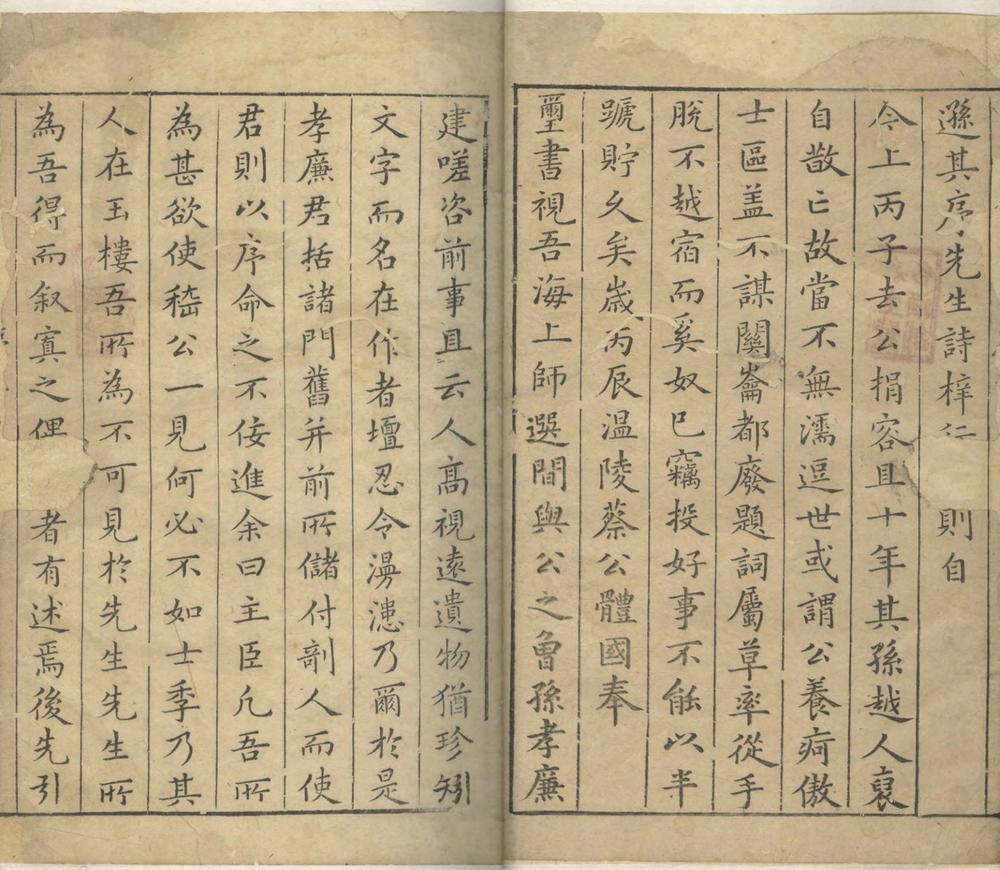 遜其序先生詩梓行則自
今上丙子去公捐容且十年其孫越人裒
自散亡故當不無濡逗世或謂公養疴傲
士區盖不謀闋崙都廢題詞屬草率從手
脫不越宿而奚奴已竊投好事不能以半
䗁貯久矣歲丙辰温陵蔡公體國奉
璽書視吾海上師選間與公之曾孫孝廉
建嗟咨前事且云人高視遠遺物猶珍矧
文字而名在作者壇忍令漫漶乃爾於是
孝廉君括諸門舊并前所儲付剞人而使
君則以序命之不佞進余曰主臣凡吾所
為甚欲使嵇公一見何必不如士季乃其
人在玉樓吾所為不可見於先生先生所
為吾得而叙寘之俚者有述焉後先引